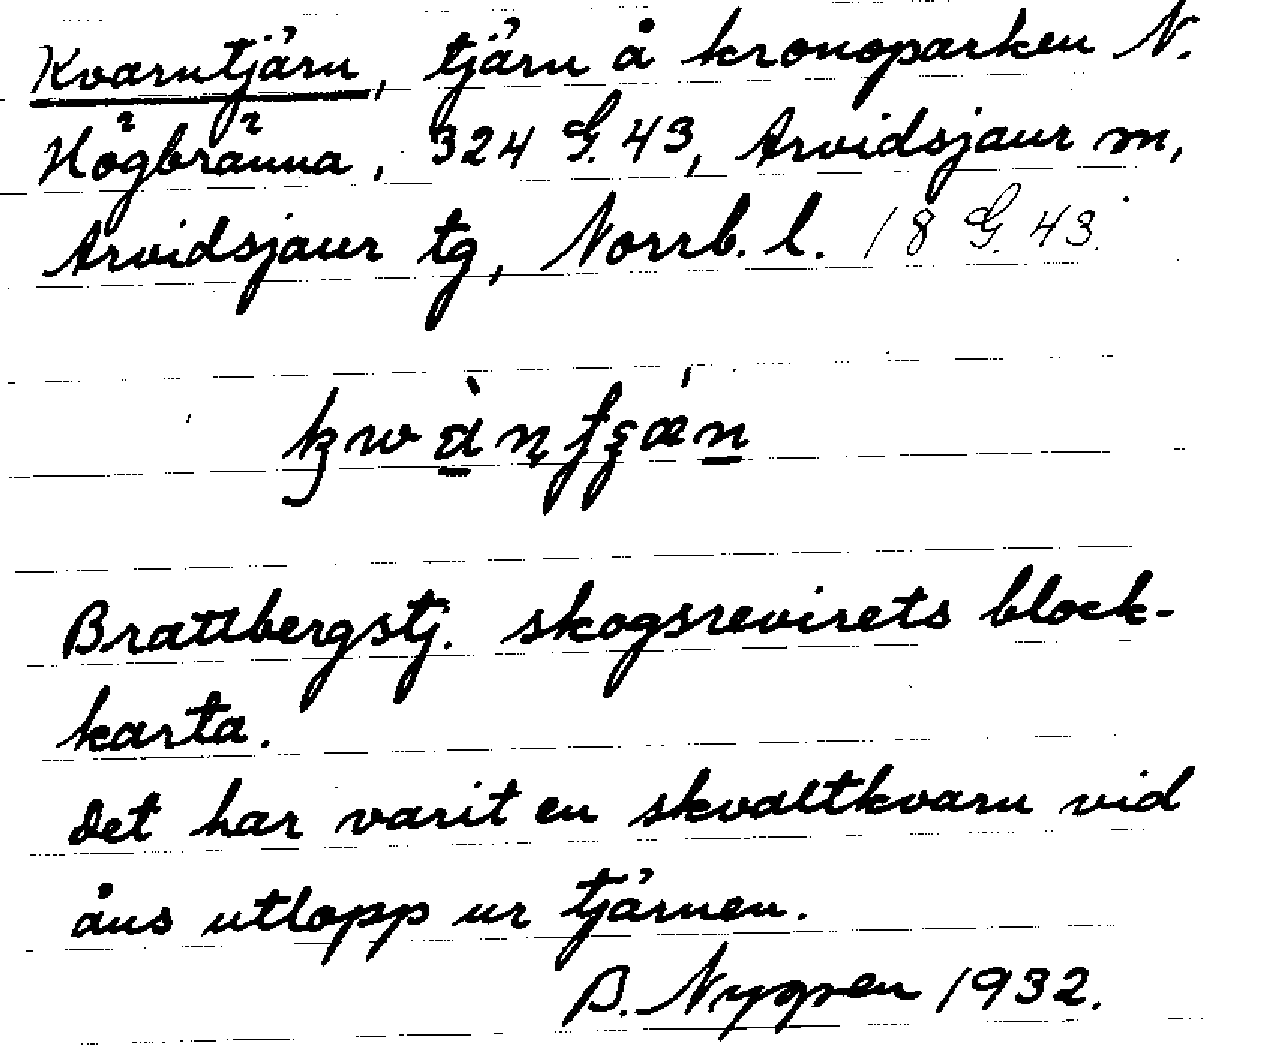 Kvarntjärn, tjärn å kronoparken N.
Högbränna, 324 G. 43, Arvidsjaur m,
Arvidsjaur tg, Norrb. l. 18 G. 43.
Brattbergstj. skogsrevirets block-
karta.
Det har varit en skvaltkvarn vid
åns utlopp ur tjärnen.
B. Nygren 1932.